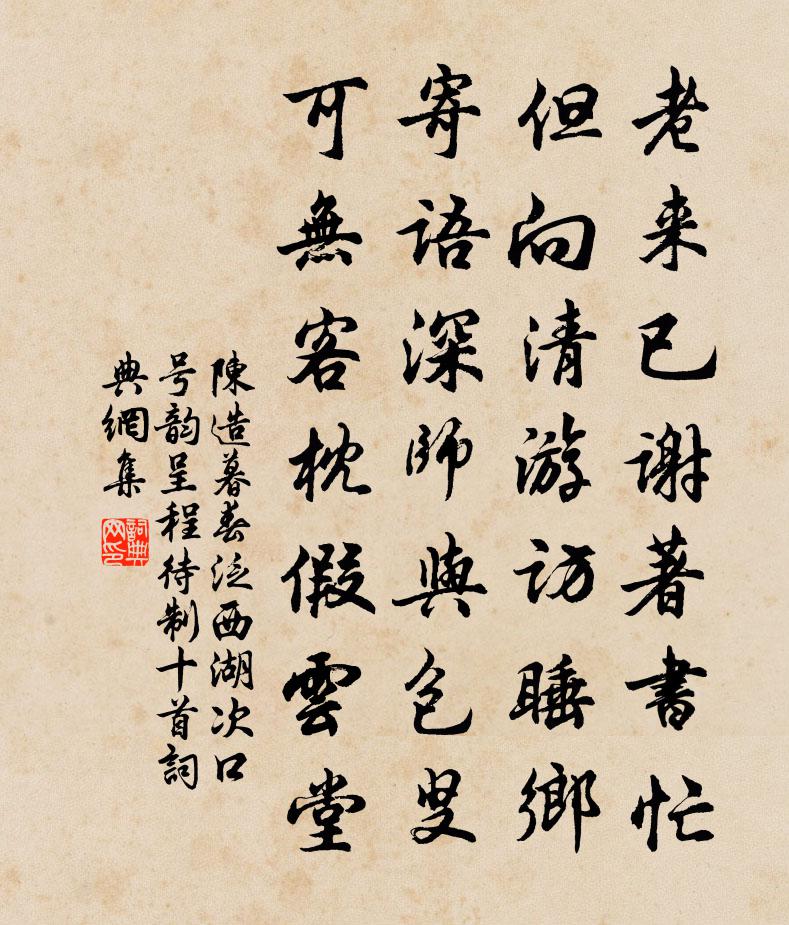 老来已谢著書忙
但向清游访睡鄉
寄语深師與包叟
可無客枕假雲堂
陳造暮春泛西湖次口
号韵呈程待制十首詞
典網集
詞典
网印